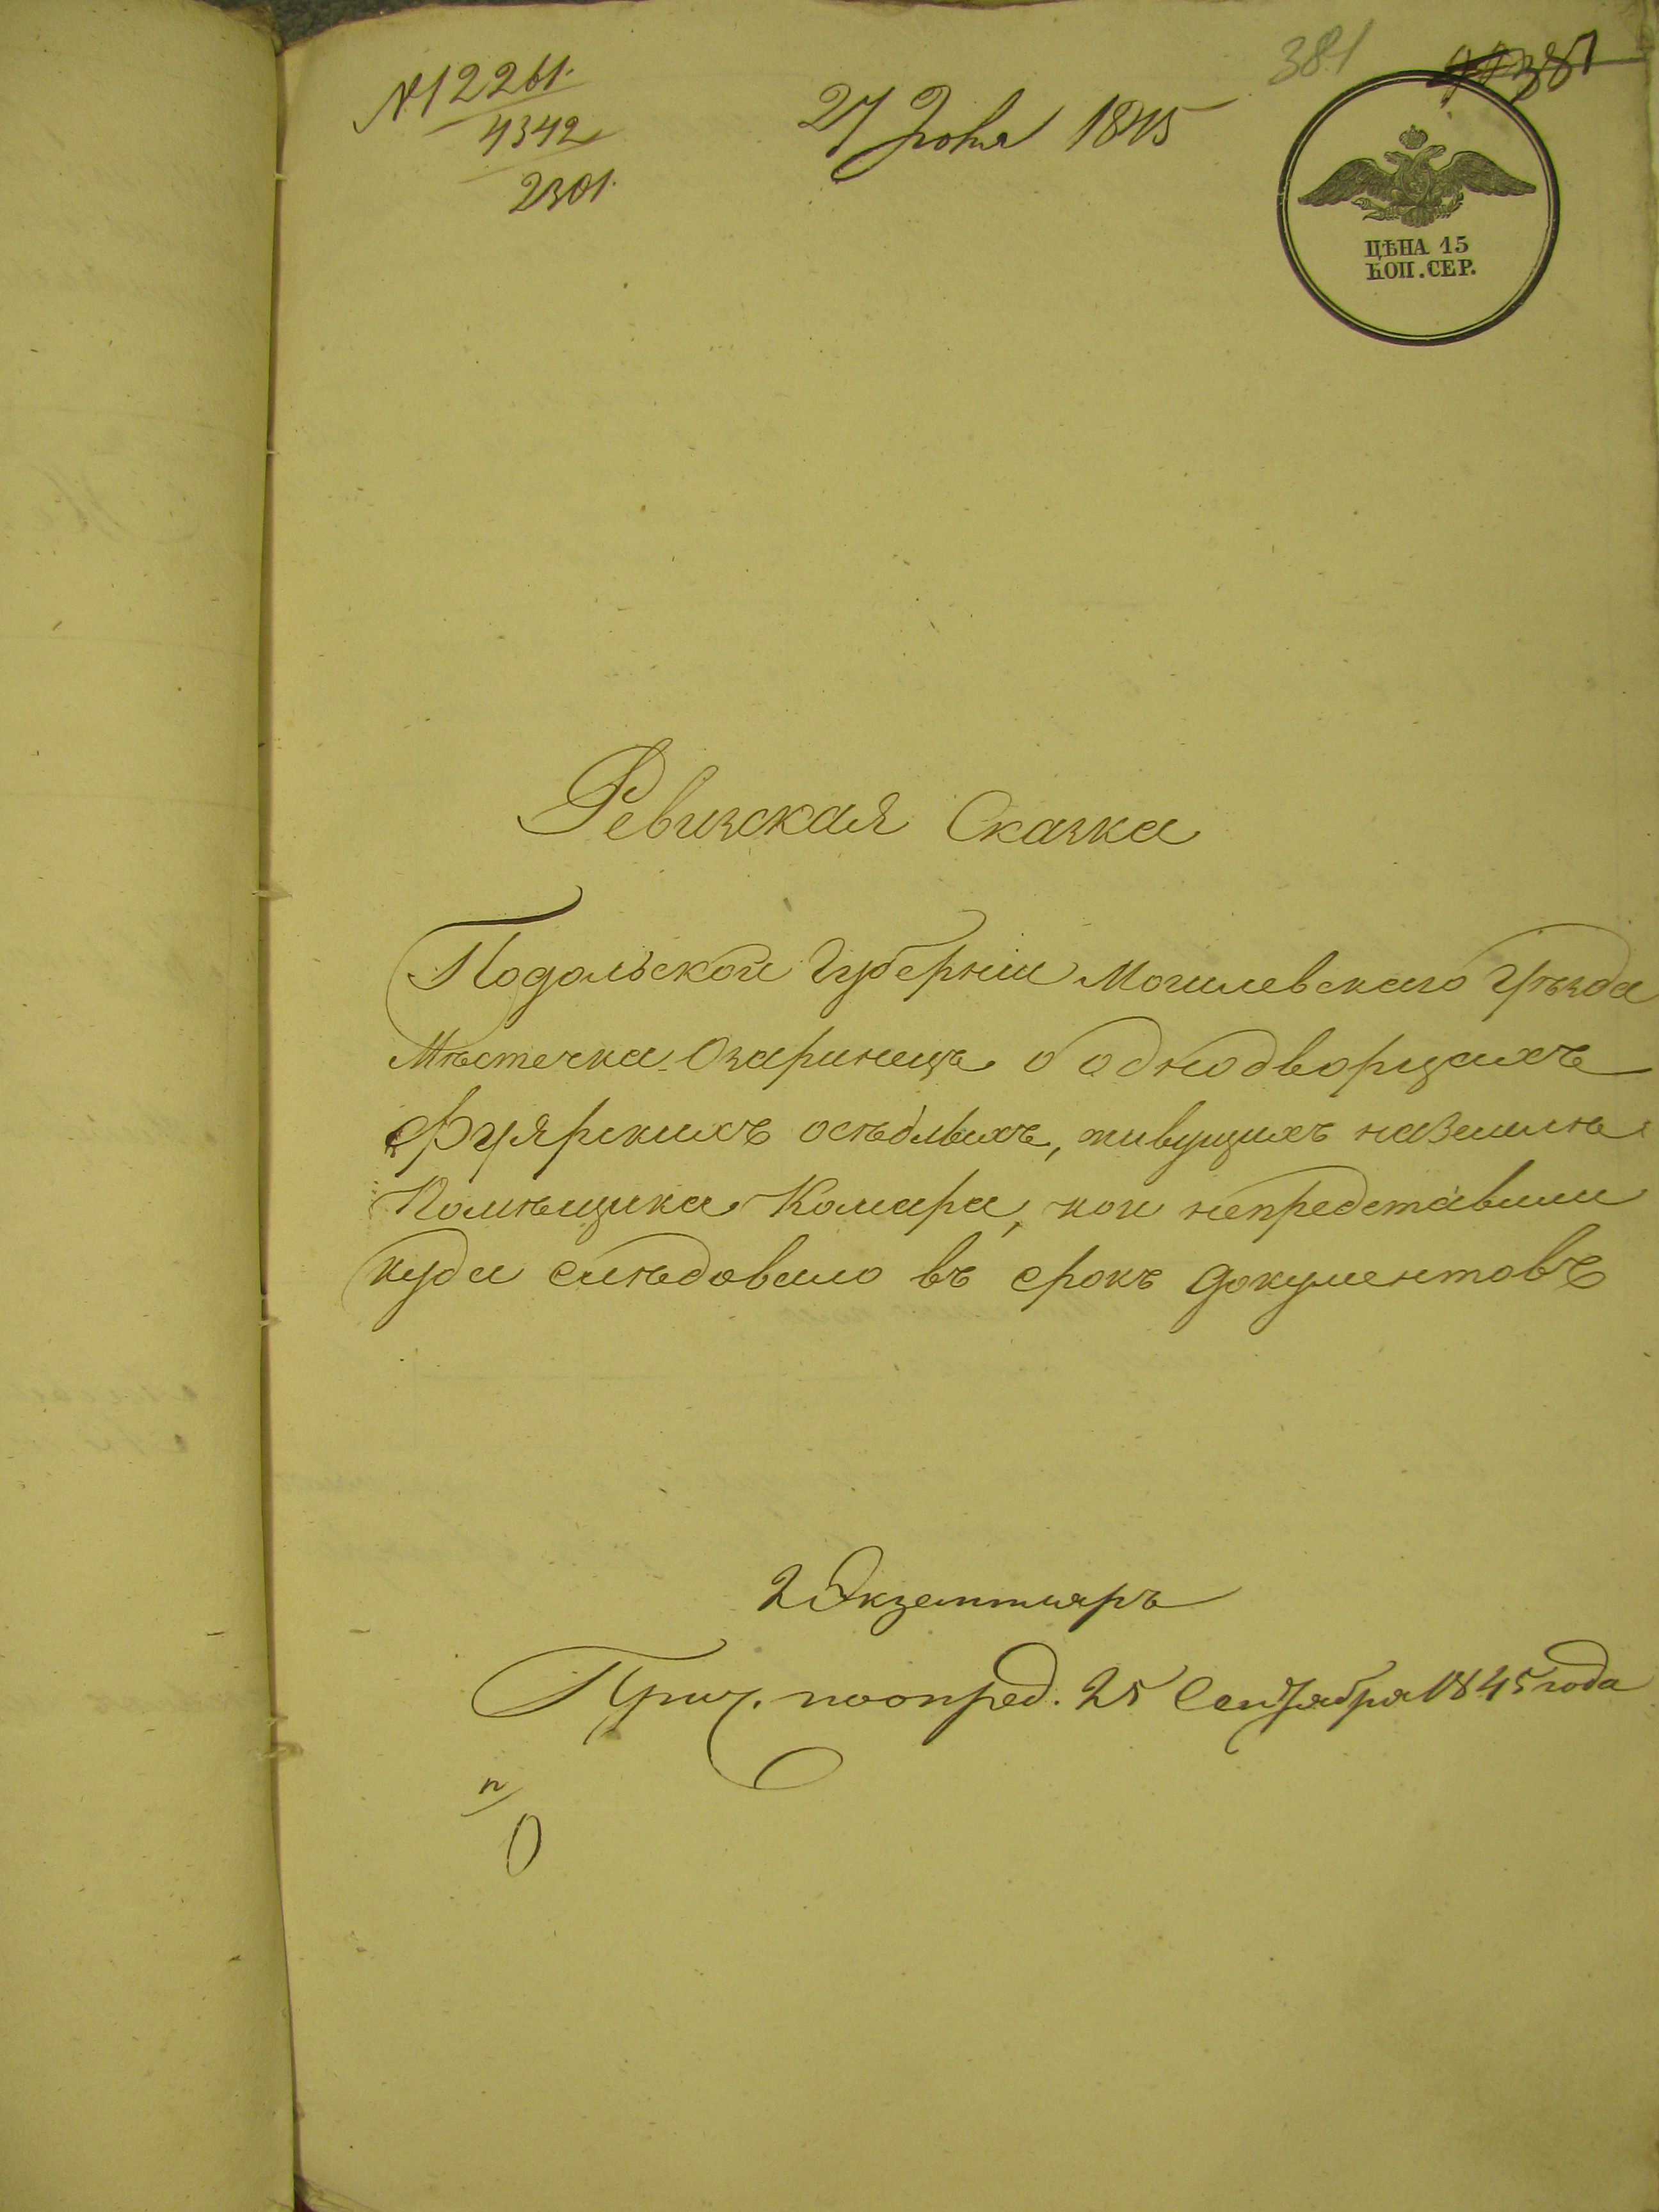 381
№ 12261.
4342
2301.
27 Июня 1845
381
ЦѢНА 15
КОП. СЕР.
Ревизская Сказка
Подольской Губерніи Могилевскаго Уѣзда
Мѣстечка Озаринецъ о однодворцахъ
осѣдлыхъ, живущихъ наЗемлѣ
Помѣщика Комара, кои непредставили
куда слѣдовало въ срокъ документовъ
2 Экземпляръ
Прич. поопред. 25 Сентября 1845 года